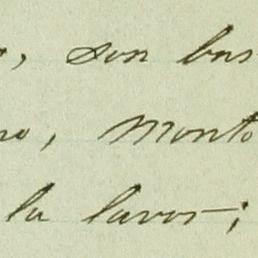 , son bas
no, monto
la lavor;